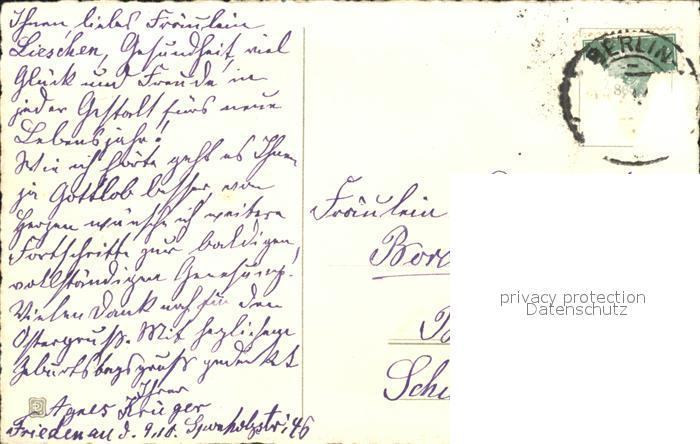 Ihnen, liebes Fräulein
Lieschen, Gesundheit, viel
Glück und Freude in
jeder Gestalt fürs neue
Lebensjahr!
Wie ich hörte geht es Ihnen
ja Gottlob besser, von
Herzen wünsche ich weitere
Fortschritte zur baldigen,
vollständigen Genesung.
Vielen Dank noch für den
Ostergruss. Mit herzlichem
Geburtstagsgruss gedenkt
Ihrer
Agnes Krüger
Friedenau d. 9.10.
BERLIN
Fräulein
privacy protection
Datenschutz